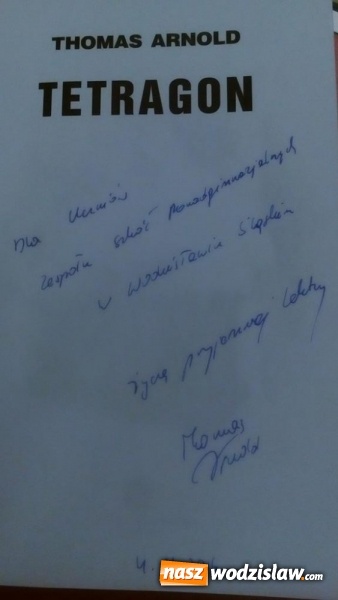 THOMAS ARNOLD
TETRAGON
Dla Uczniów
Zespołu Szkół Ponadgimnazjalnych
w Wodzisławiu Śląskim
Życzę przyjemnej lektury
Thomas
Arnold
4.
naszwodzislaw.com